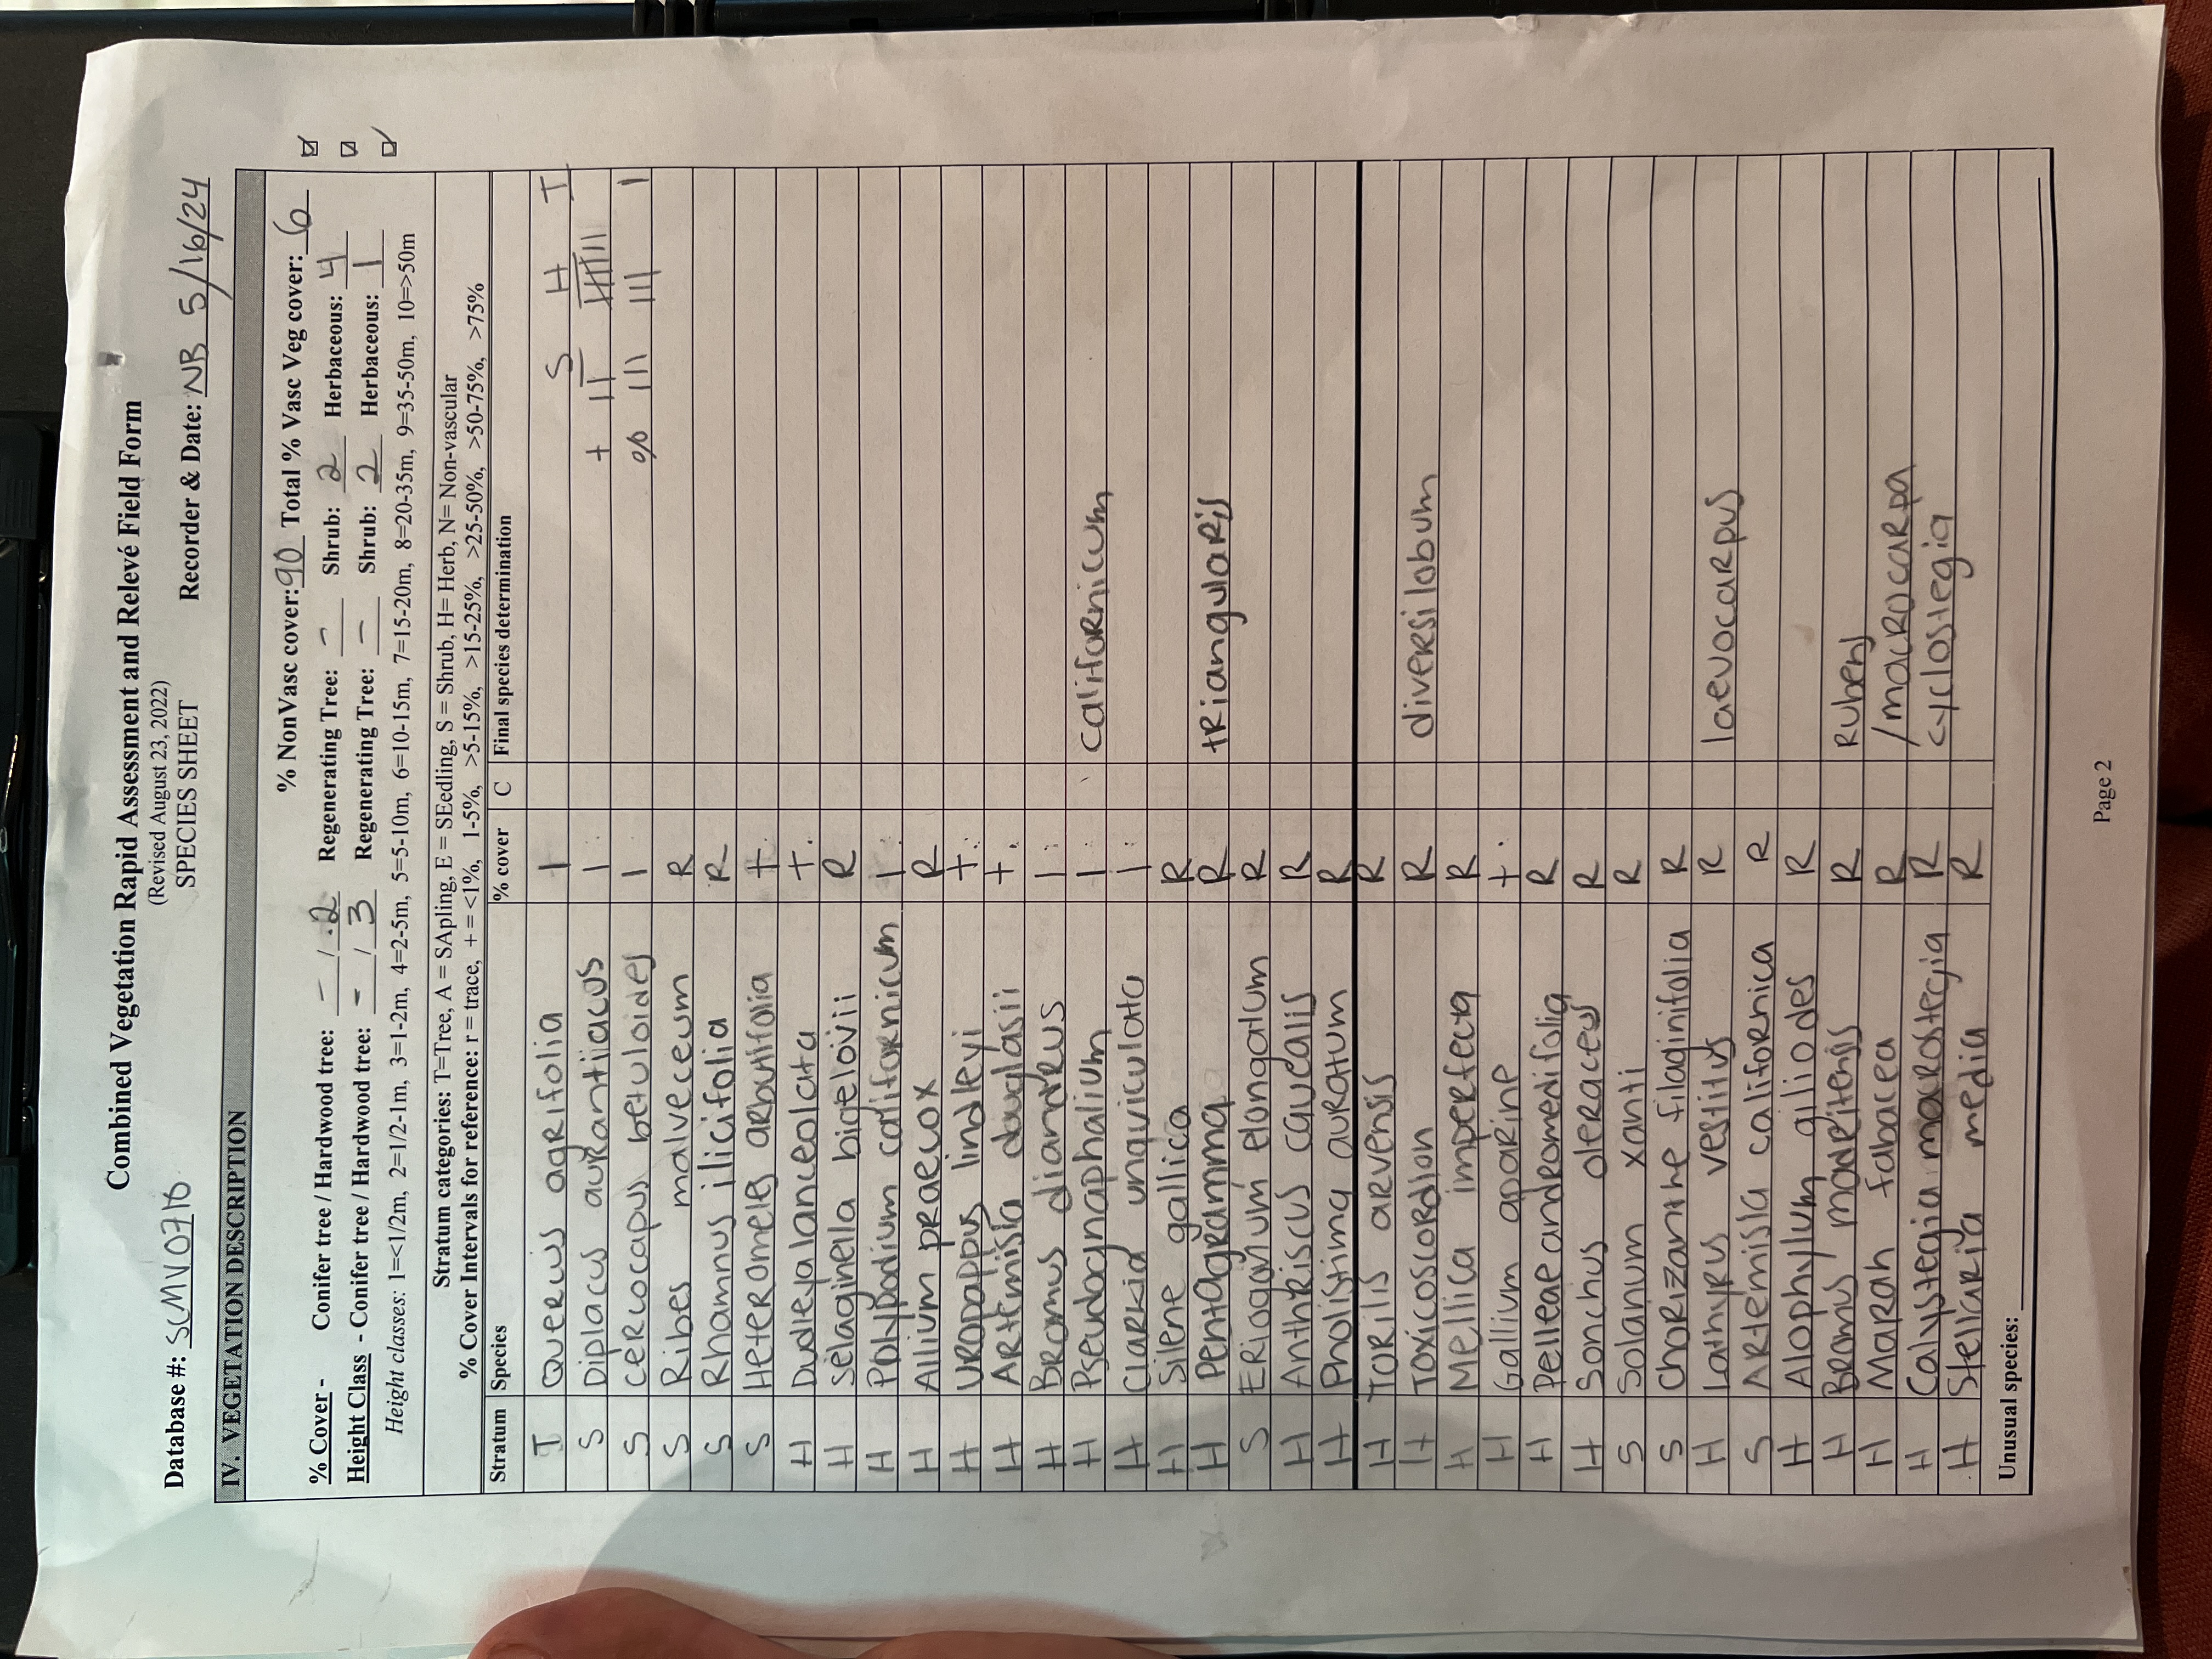 Combined Vegetation Rapid Assessment and Relevé Field Form
(Revised August 23, 2022)
SPECIES SHEET
Database #: SCMV0718 Recorder & Date: NB 5/16/24
IV. VEGETATION DESCRIPTION
% NonVasc cover: 90 Total % Vasc Veg cover: 6
% Cover - Conifer tree / Hardwood tree: - / .2 Regenerating Tree: - Shrub: 2 Herbaceous: 4
Height Class - Conifer tree / Hardwood tree: - / 3 Regenerating Tree: - Shrub: 2 Herbaceous: 1
Height classes: 1=<1/2m, 2=1/2-1m, 3=1-2m, 4=2-5m, 5=5-10m, 6=10-15m, 7=15-20m, 8=20-35m, 9=35-50m, 10=>50m
Stratum categories: T=Tree, A = SApling, E = SEedling, S = Shrub, H= Herb, N= Non-vascular
% Cover Intervals for reference: r = trace, + = <1%, 1-5%, >5-15%, >15-25%, >25-50%, >50-75%, >75%
Stratum Species % cover C Final species determination
T Quercus agrifolia 1 S H T
S Diplacus aurantiacus 1 +
S Cercocapus betuloides 1 % III III 1
S Ribes malveceum R
S Rhamnus ilicifolia R
S Heteromeles arbutifolia +
H Dudleya lanceolata +
H Selaginella bigelovii R
H Polypodium californicum 1
H Allium praecox R
H Uropappus lindleyi +
H Artemisia douglasii +
H Bromus diandrus 1
H Pseudognaphalium 1 californicum
H Clarkia unguiculata 1
H Silene gallica R
H Pentagramma R triangularis
S Eriogonum elongatum R
H Anthriscus caucalis R
H Pholistima auratum R
H Torilis arvensis R
H Toxicoscordion R diversilobum
H Mellica imperfecta R
H Gallium aparine +
H Pelleae andromedifolia R
H Sonchus oleraceus R
S Solanum xanti R
S Chorizanthe filaginifolia R
H Lathyrus vestitus R laevocarpus
S Artemisia californica R
H Alophyllum giliodes R
H Bromus madritensis R Rubens
H Marah fabacea R /macrocarpa
H Calystegia marostegia R cyclostegia
H Stellaria media R
Unusual species:
Page 2